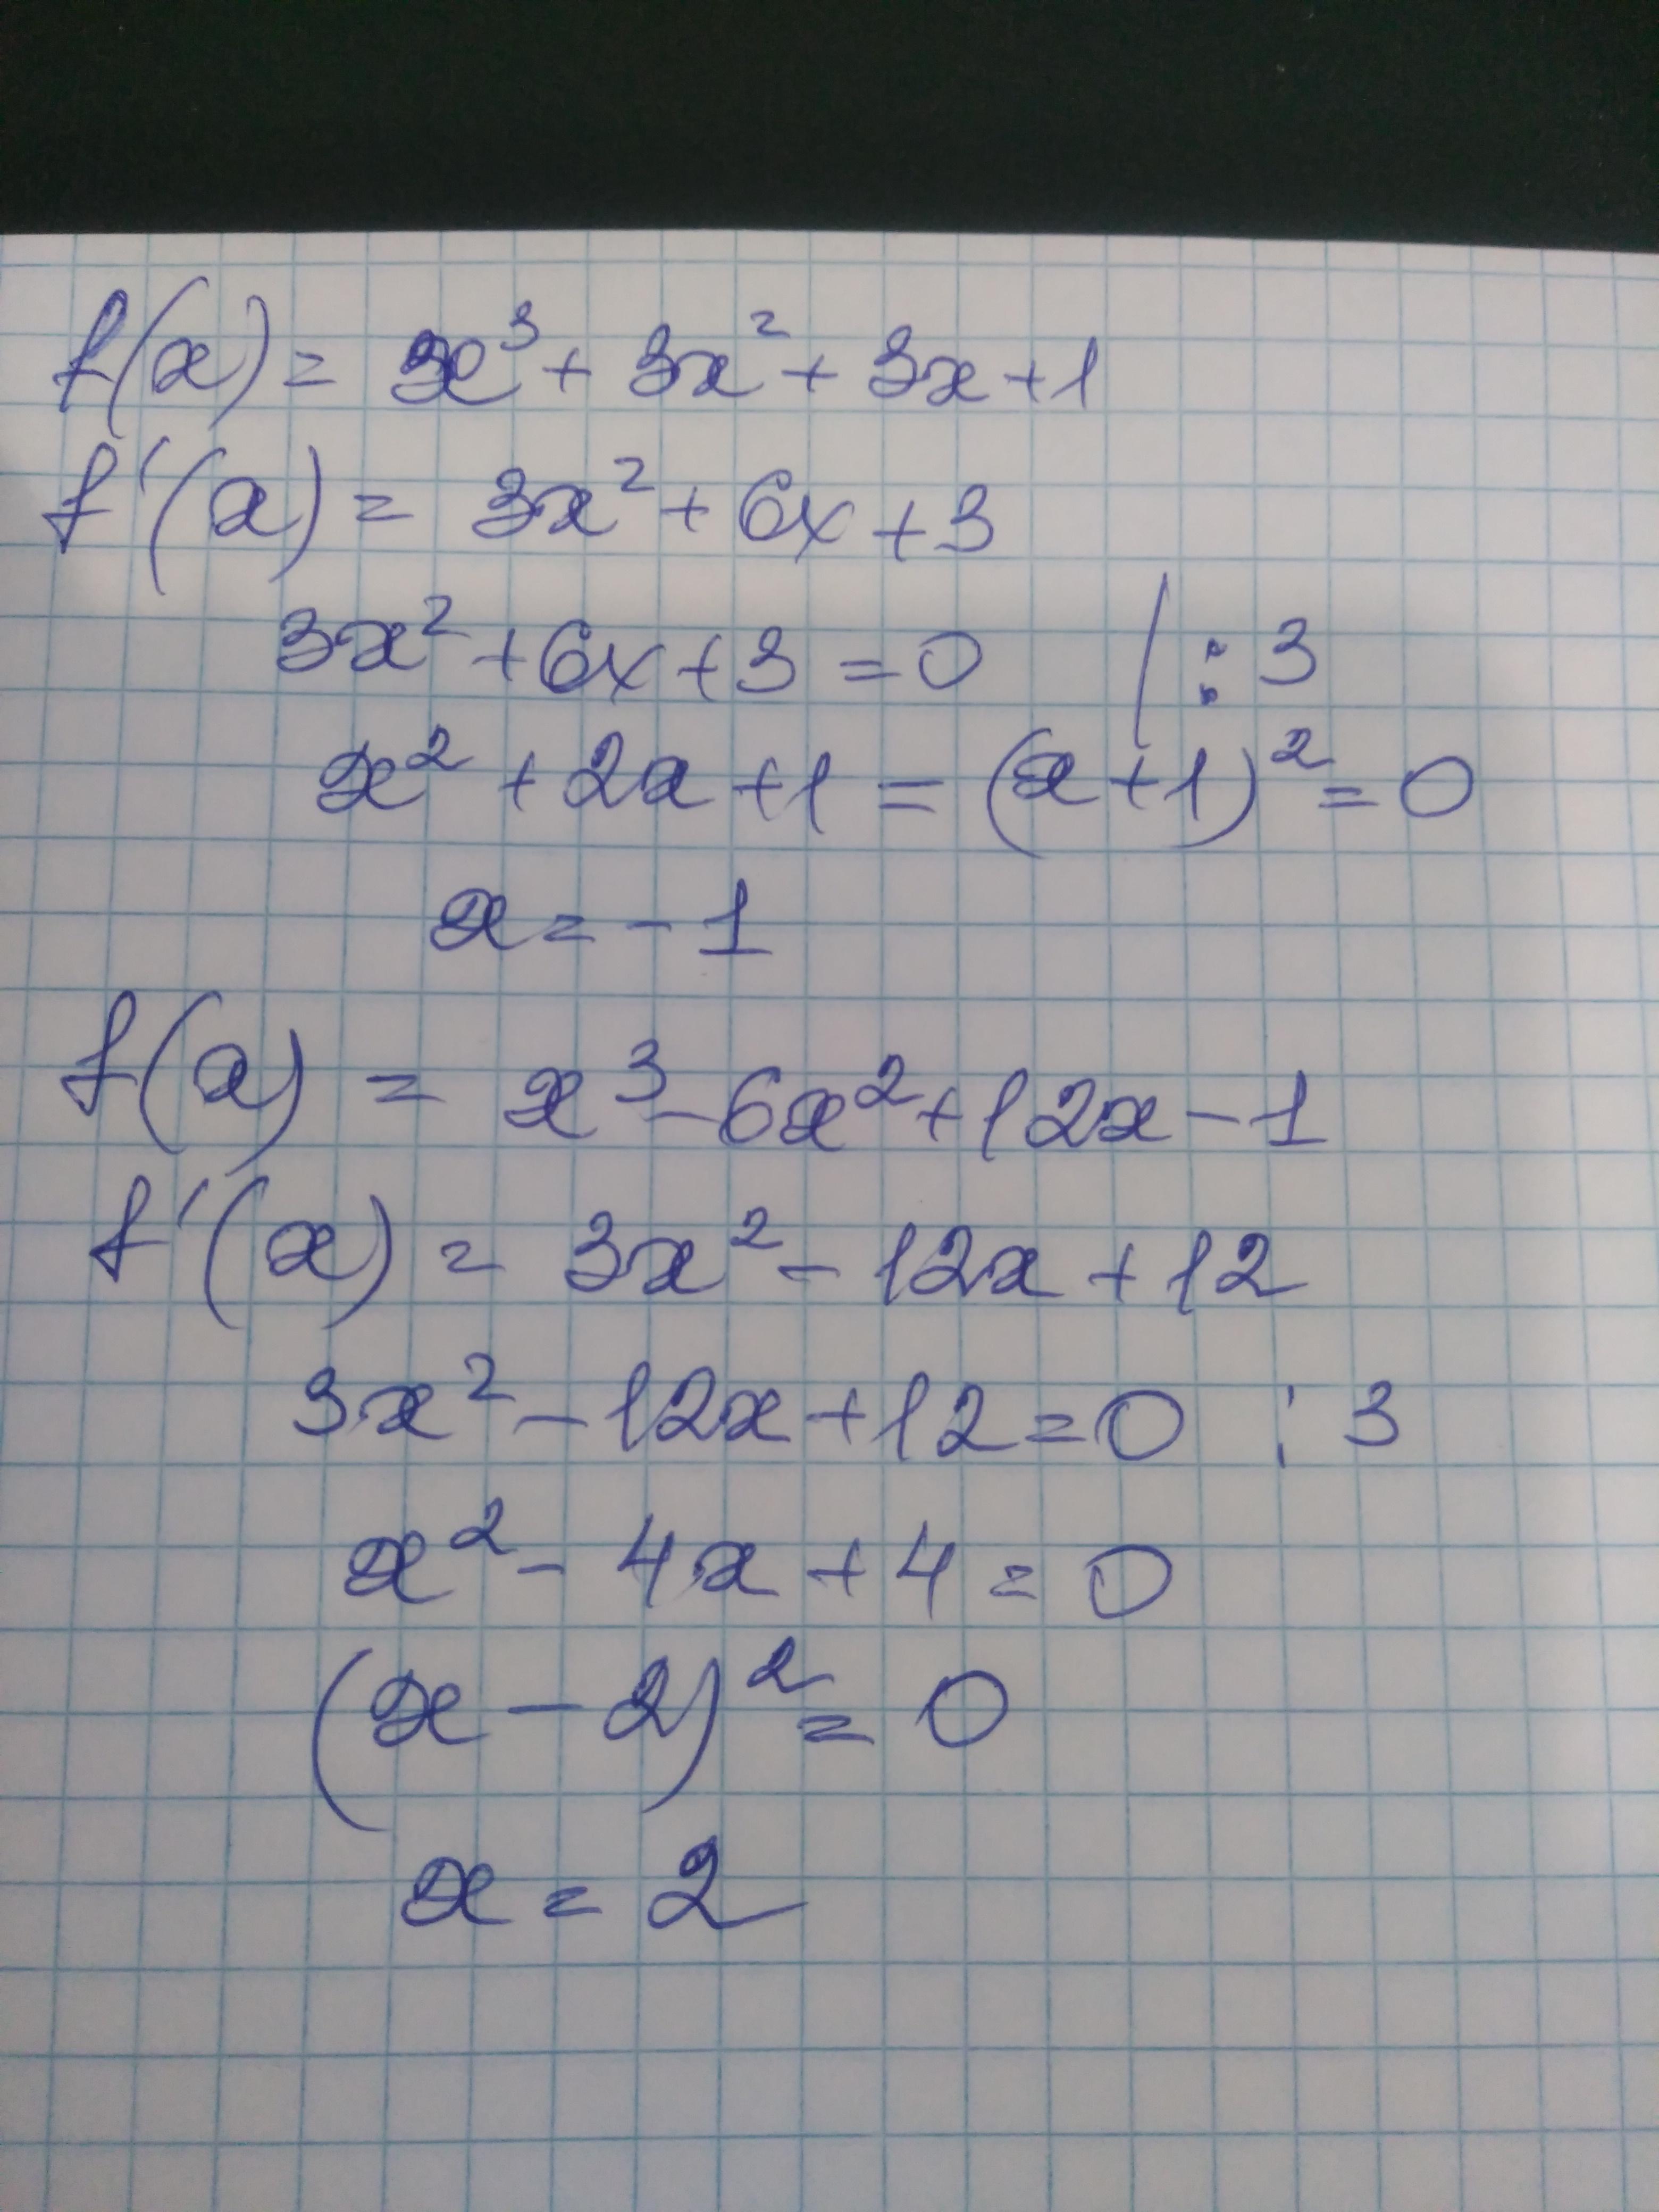 f(x) = x³ + 3x² + 3x + 1
f'(x) = 3x² + 6x + 3
3x² + 6x + 3 = 0 | : 3
x² + 2x + 1 = (x + 1)² = 0
x = - 1
f(x) = x³ - 6x² + 12x - 1
f'(x) = 3x² - 12x + 12
3x² - 12x + 12 = 0 : 3
x² - 4x + 4 = 0
(x - 2)² = 0
x = 2